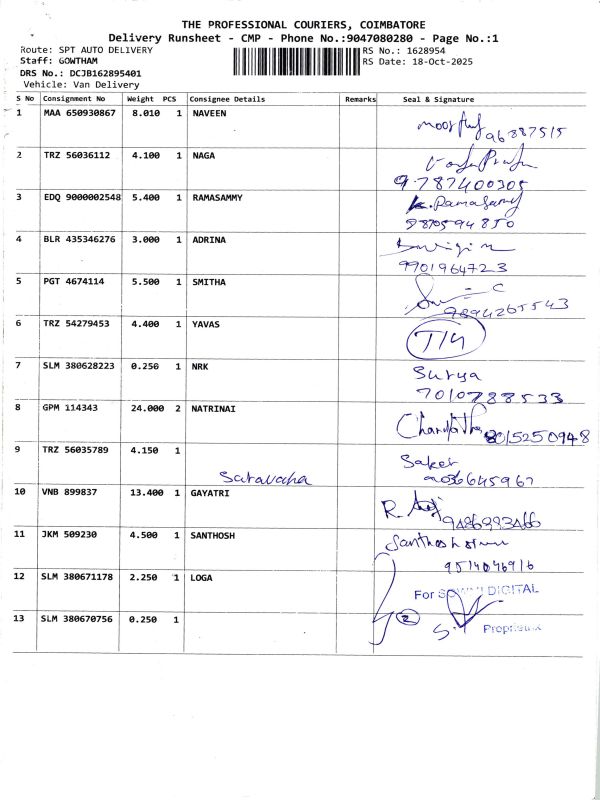 THE PROFESSIONAL COURIERS, COIMBATORE
Delivery Runsheet - CMP - Phone No.:9047080280 - Page No.:1
Route: SPT AUTO DELIVERY
RS No.: 1628954
Staff: GOWTHAM
RS Date: 18-Oct-2025
DRS No.: DCJB162895401
Vehicle: Van Delivery
S No Consignment No Weight PCS Consignee Details Remarks Seal & Signature
1 MAA 650930867 8.010 1 NAVEEN
2 TRZ 56036112 4.100 1 NAGA
9787400305
3 EDQ 9000002548 5.400 1 RAMASAMMY K. Ramasamy
9870594850
4 BLR 435346276 3.000 1 ADRINA
9901964723
5 PGT 4674114 5.500 1 SMITHA
9894265543
6 TRZ 54279453 4.400 1 YAVAS
7 SLM 380628223 0.250 1 NRK Surya
7010788533
8 GPM 114343 24.000 2 NATRINAI
8015250948
9 TRZ 56035789 4.150 1
10 VNB 899837 13.400 1 GAYATRI
11 JKM 509230 4.500 1 SANTHOSH
12 SLM 380671178 2.250 1 LOGA
For DIGITAL
13 SLM 380670756 0.250 1
2